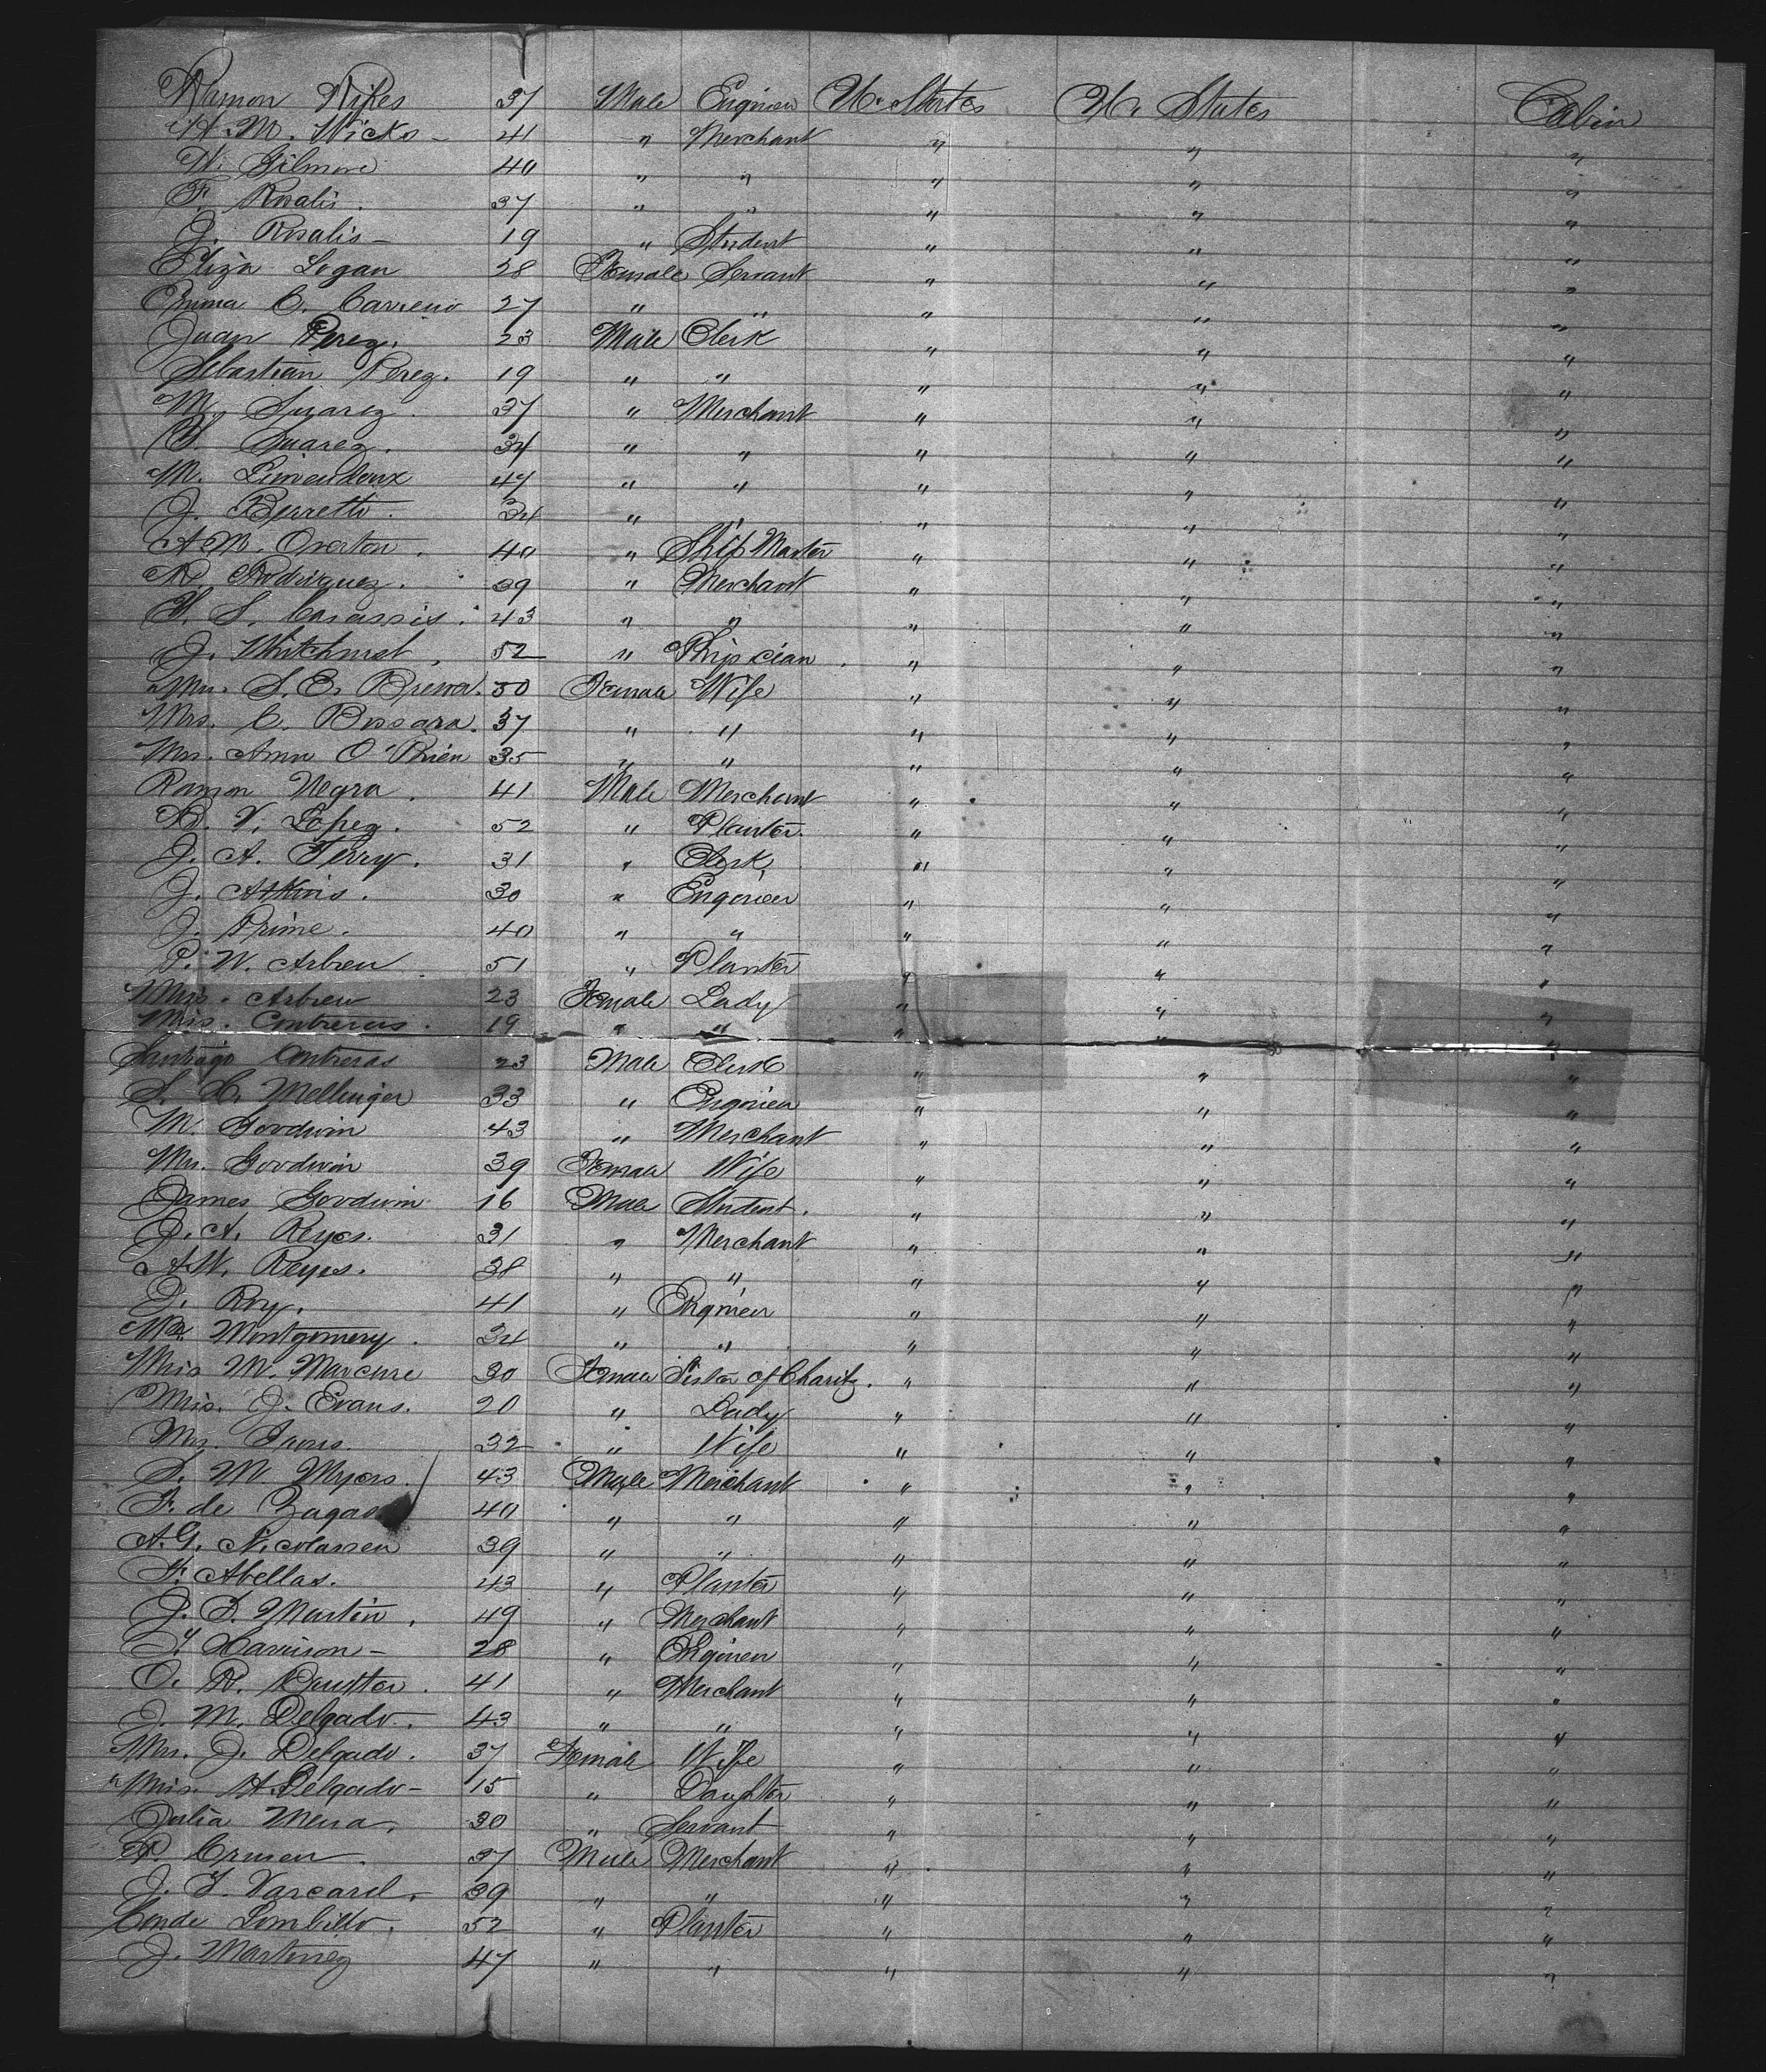 Ramon Rikes 37 Male Engineer U. States U. States Cabin
H. M. Wicks - 41 " Merchant " " "
W. Gilmore 40 " " " " "
F. Rosalis. 37 " " " " "
J. Rosalis - 19 " Student " " "
Eliza Logan 28 Female Servant " " "
Emma C. Carreno 27 " " " " "
Juan Perez. 23 Male Clerk " " "
Sebastian Perez. 19 " " " " "
M. Suarez. 37 " Merchant " " "
Suarez. 34 " " " " "
M. 47 " " " " "
J. Berretto. 34 " " " " "
A. M. Overton. 40 " Ship Master " " "
Rodriguez. 39 " Merchant " " "
S. 43 " " " " "
J. Whitehurst, 52 " Phipician. " " "
Mrs. S. E. Brewer. 30 Female Wife " " "
Mrs. C. Bossara. 37 " " " " "
Mrs. Ann O'Brien 35 " " " " "
Ramon Negra. 41 Male Merchant " " "
B. V. Lopez. 52 " Planter. " " "
J. A. Terry. 31 " Clerk " " "
J. Atkins. 30 " Engineer " " "
J. Prime. 40 " " " " "
P. W. Arbreu 51 " Planter " " "
Miss. Arbreu 23 Female Lady " " "
Miss. Contreras. 19 " " " " "
Santiago Contreras 23 Male Clerk " " "
S. H. Mellinger 33 " Engineer " " "
M. Goodwin 43 " Merchant " " "
Mrs. Goodwin 39 Female Wife " " "
James Goodwin 16 Male Student. " " "
A. Reyes. 31 " Merchant " " "
A. W. Reyes. 38 " " " " "
Roy. 41 " Engineer " " "
Montgomery. 34 " " " " "
Miss M. Marcure 30 Female Sister of Charity. " " "
Miss. J. Evans. 20 " Lady " " "
Mrs. 32 " Wife " " "
M. Myers. 43 Male Merchant " " "
F. de 40 " " " " "
A. G. Nicolassen 39 " " " " "
F. Abellas. 43 " Planter " " "
J. S. Martin. 49 " Merchant " " "
Harrison - 28 " Engineer " " "
O. R. 41 " Merchant " " "
J. M. Delgado. 43 " " " " "
Mrs. J. Delgado. 37 Female Wife " " "
Miss. H. Delgado - 15 " Daughter " " "
Julia Mesa. 30 " Servant " " "
Crusen. 37 Male Merchant " " "
J. 39 " " " " "
Conde Lombillo. 52 " Planter " " "
J. Martinez 47 " " " " "